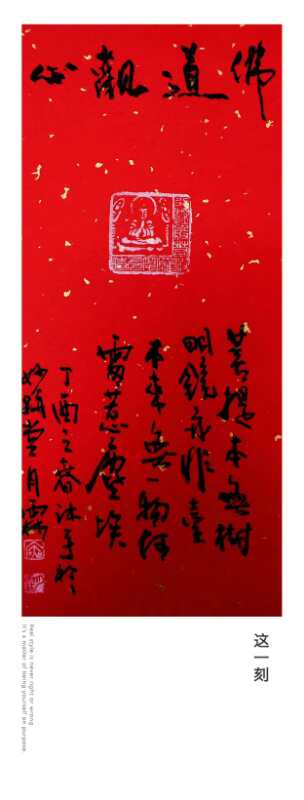 佛道觀心
菩提本無樹
明鏡亦非臺
本來無一物何
處惹塵埃
丁酉之春沐手於
妙
堂月
这一刻
Real style is never right or wrong
It's a matter of being yourself on purpose